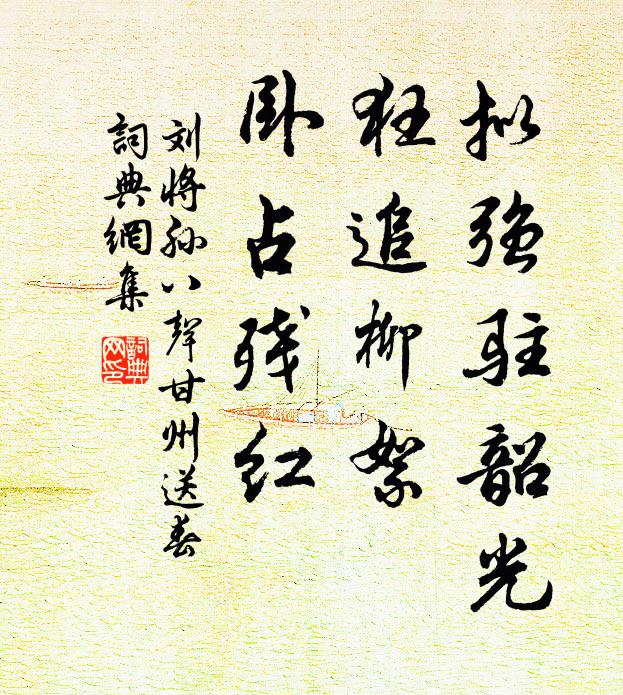 拟强驻韶光
狂追柳絮
卧占残红
刘将孙八聲甘州送春
詞典網集
詞典
网印